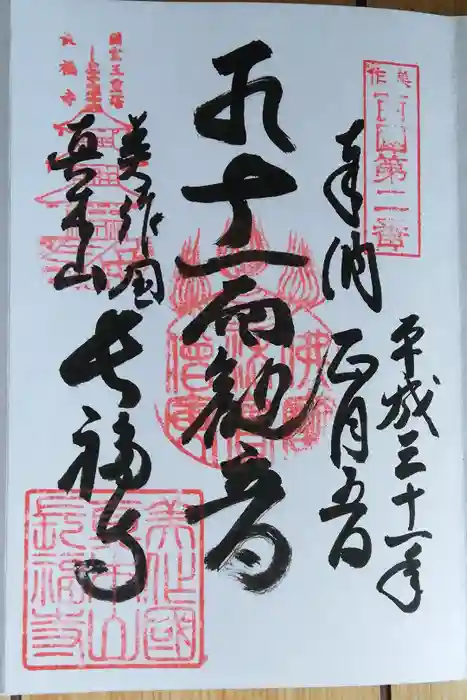 美作
西國第二番
奉納
平成三十一年
正月五日
十一面観音
美作国
真木山
長福寺
國宝三重塔
長福寺
佛法僧寶
美作國
真木山
長福寺